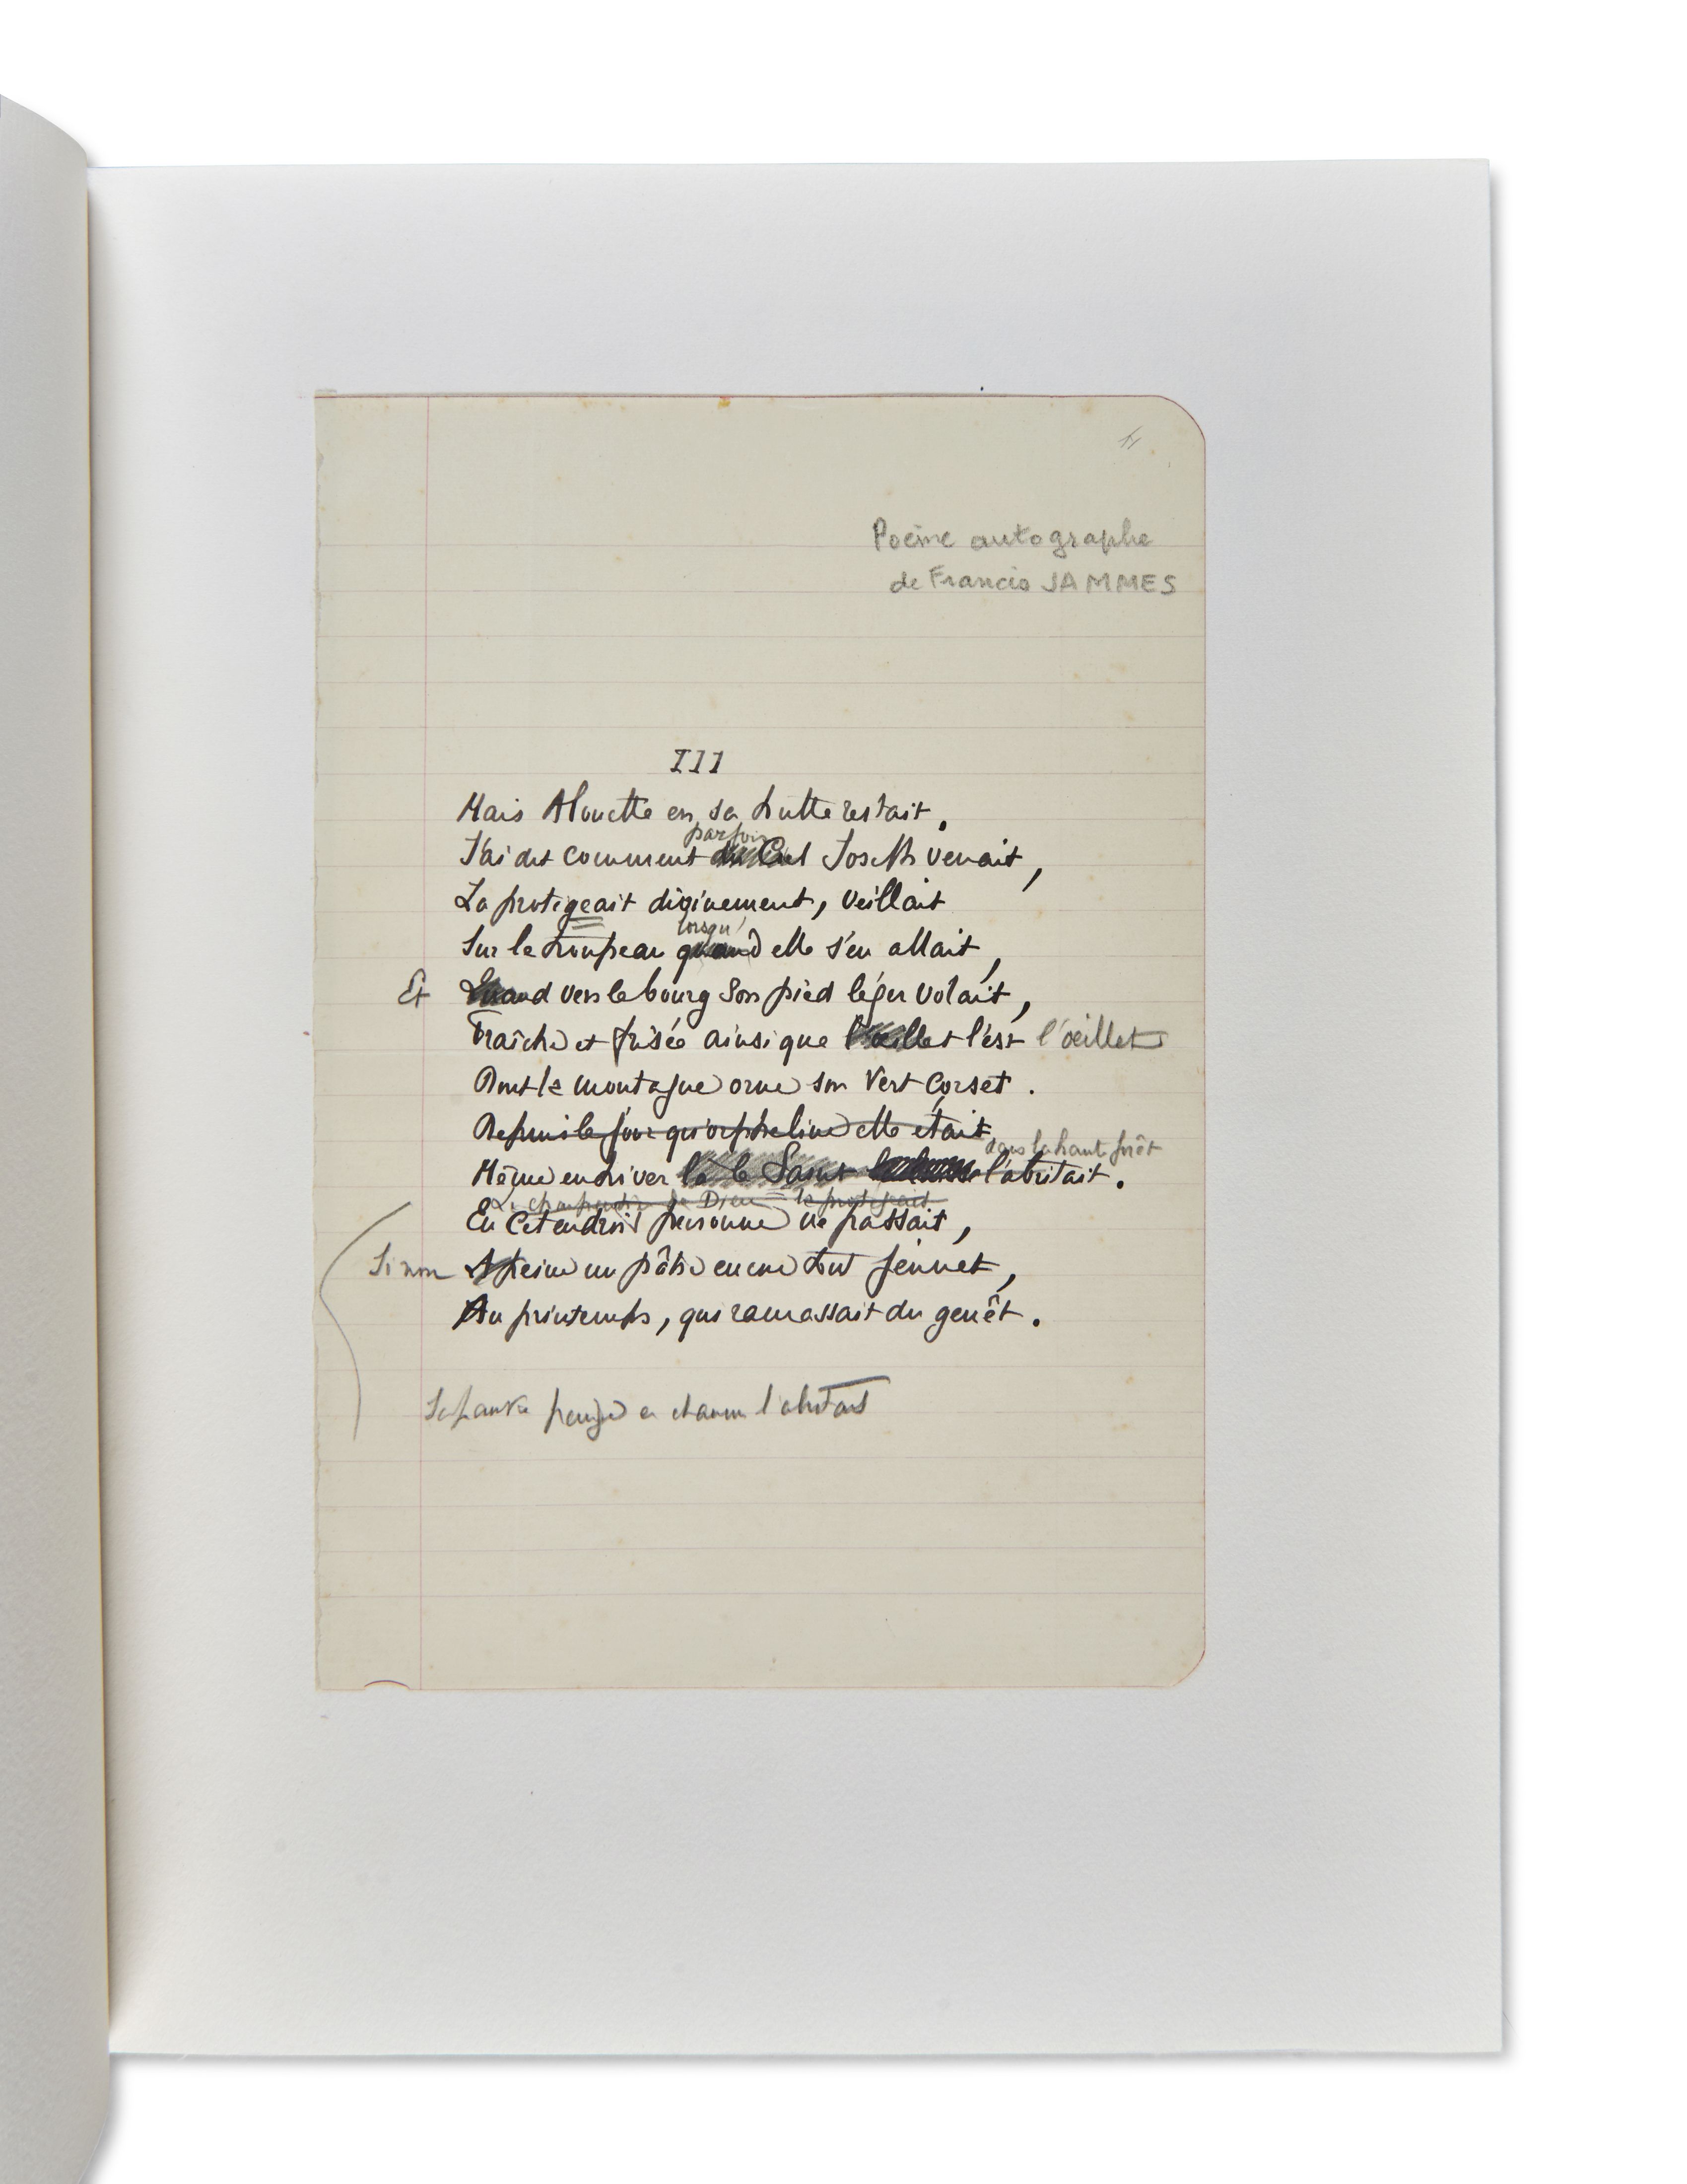 Poème autographe
de Francis JAMMES
III
Mais Alouette en sa hutte restait.
parfois
J'ai dit comment du Ciel Joseph venait,
La protégeait divinement, veillait
lorsqu'
Sur le troupeau quand elle s'en allait,
Et Quand vers le bourg son pied léger volait,
Fraîche et frisée ainsi que l'œillet l'est l'œillet
Dont la montagne orne son vert corset.
Depuis le jour qu'orpheline elle était
dans la haute forêt
Même en hiver là le Saint l'abritait.
Le charpentier de Dieu la protégeait
En cet endroit personne ne passait,
Sinon A peine un pâtre encore tout jeunet,
Au printemps, qui ramassait du genêt.
l'abritait